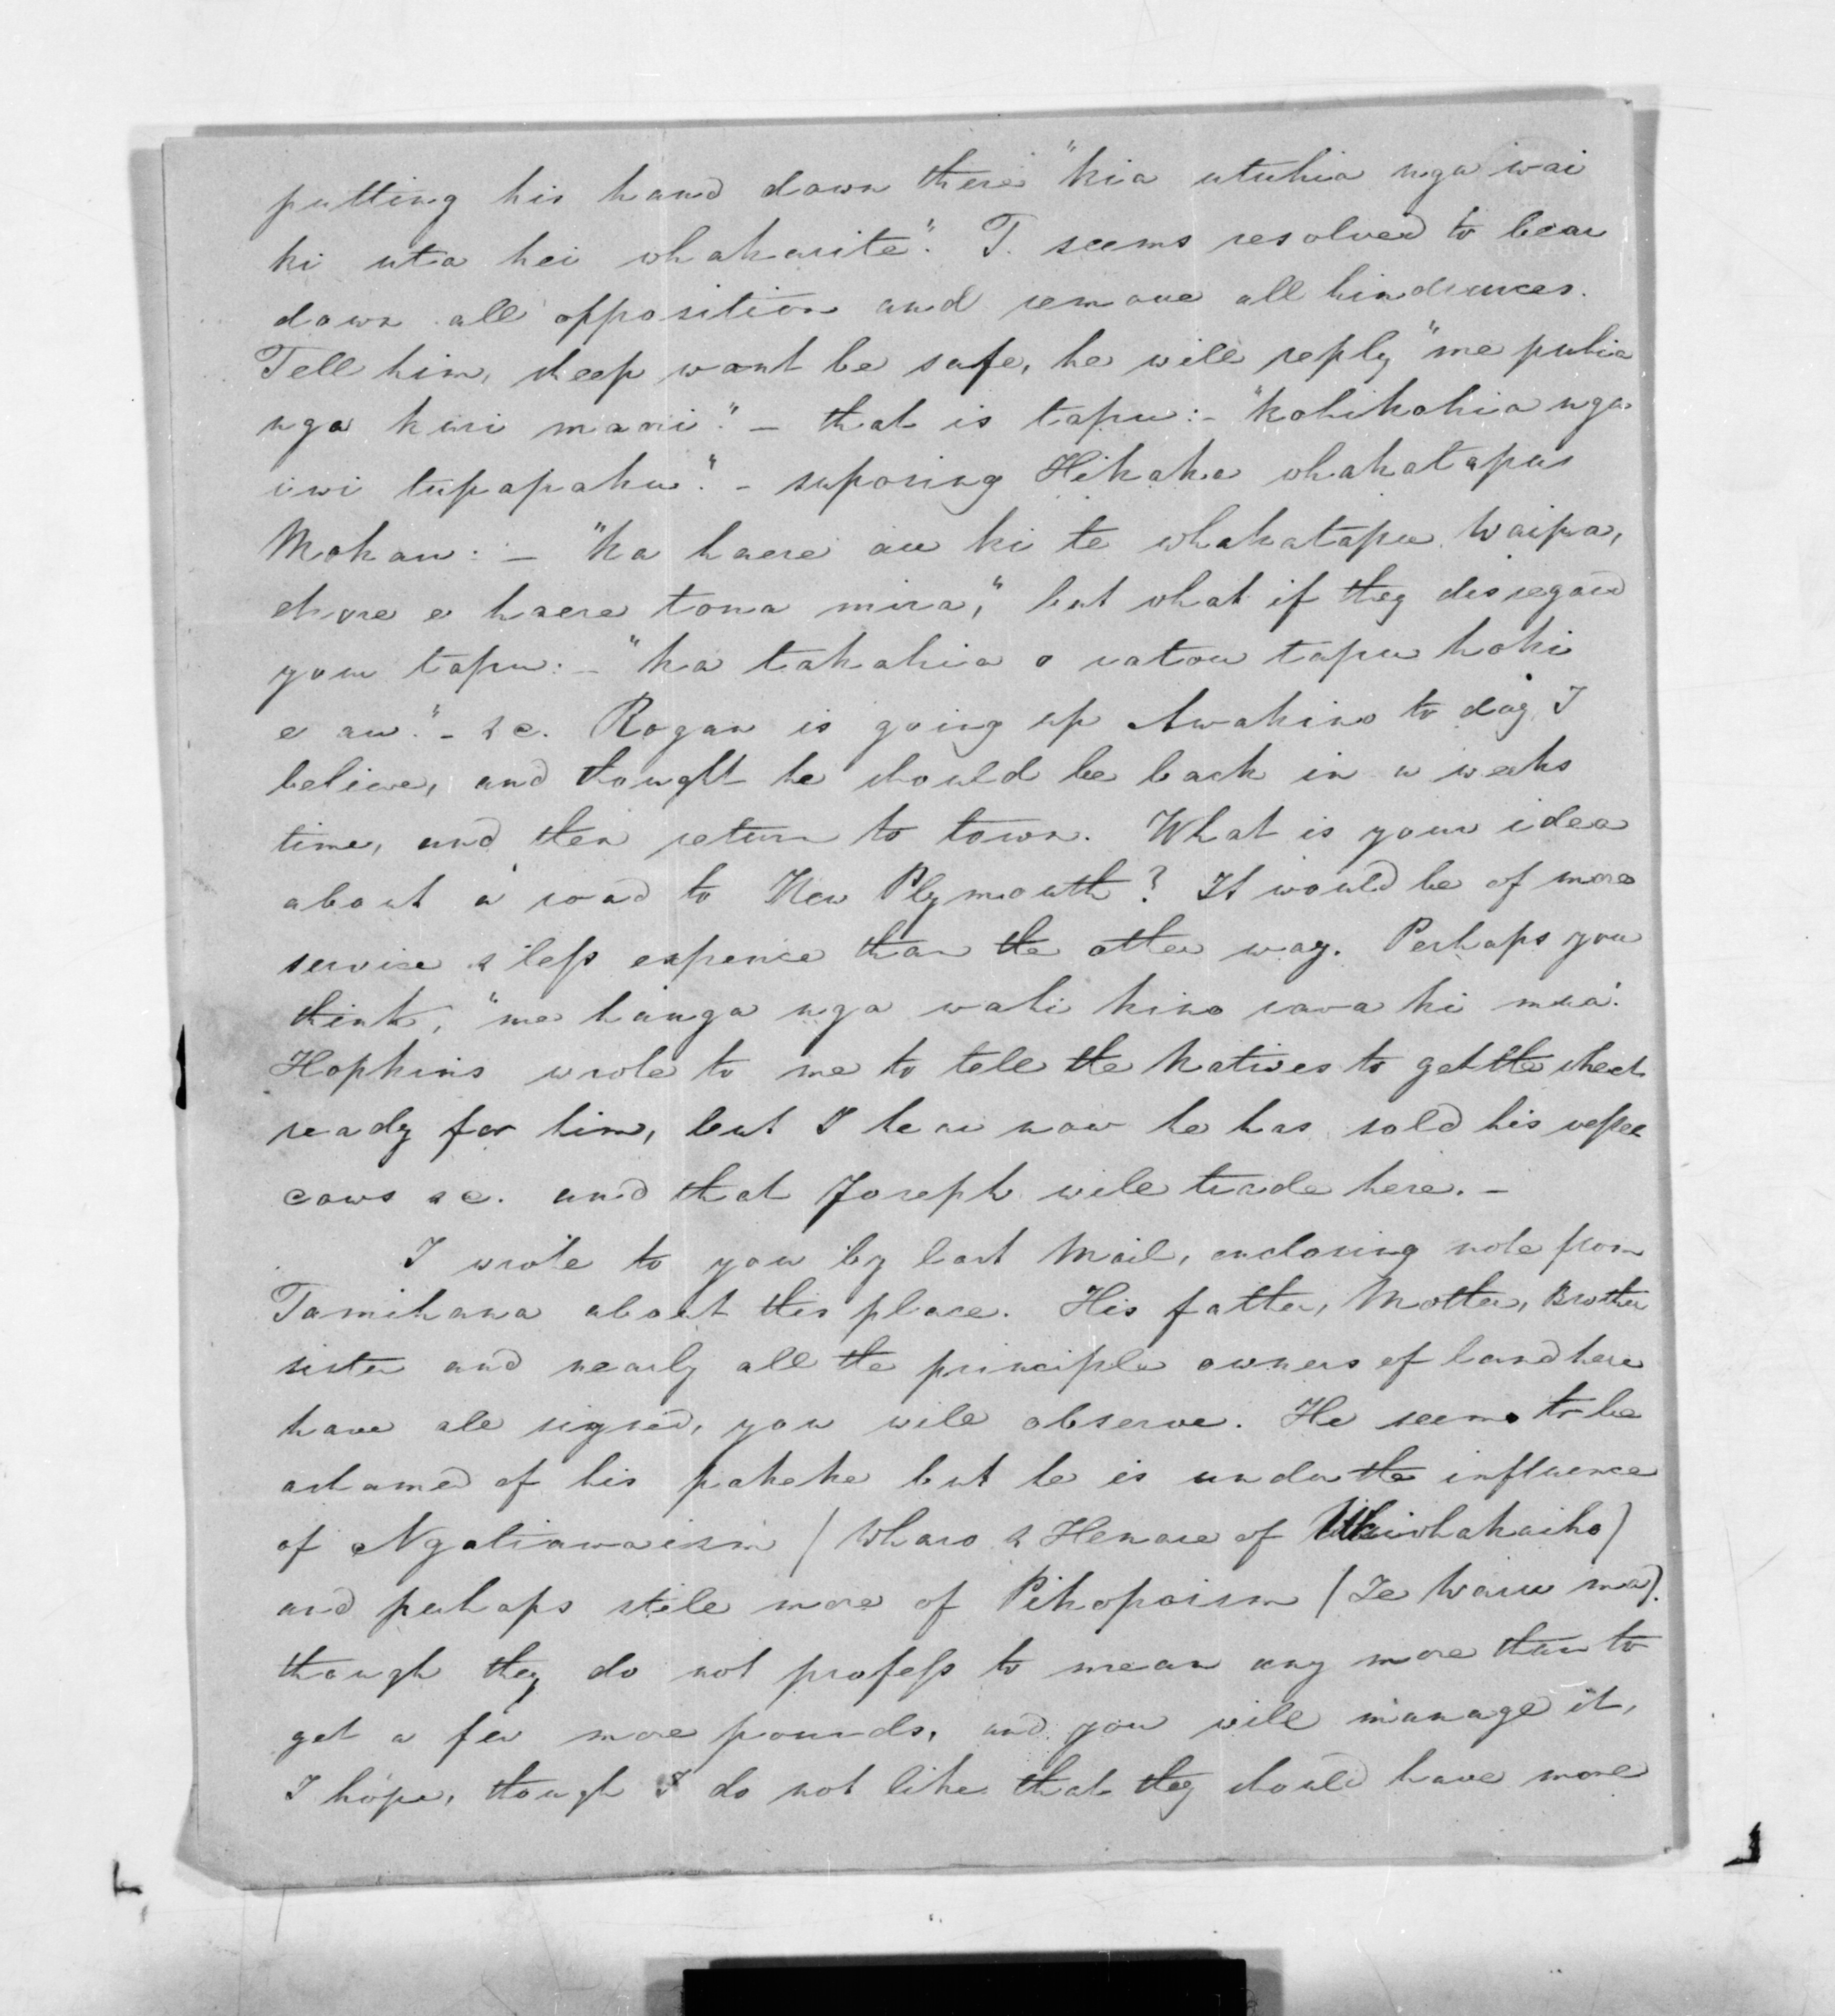 putting his hand down there "kia utuhia nga wai
ki uta hei whakarite". T. seems resolved to bear
down all opposition and remove all hindrances.
Tell him, sheep wont be safe, he will reply "me puhia
nga kuri maori". — that is tapu: - "kohikohia nga
iwi tupapaku". - suposing Hikaka whakatapus
Mokau: — "ka haere au ki te whakatapu Waipa,
ekore e haere tona mira," but what if they disregard
your tapu: — "ka takahia o ratou tapu hoki
e au." - &c. Rogan is going up Awakino to day, I
believe, and thought he should be back in a weeks
time, and then return to town. What is your idea
about a road to New Plymouth? It would be of more
service & less expence than the other way. Perhaps you
think, "me hanga nga wahi kino rawa ki mua".
Hopkins wrote to me to tell the Natives to get the wheat
ready for him, but I hear now he has sold his vessel
cows &c. and that Joseph will trade here. —
I wrote to you by last Mail, enclosing note from
Tamihana about this place. His father, Mother, Brother
sister and nearly all the principle owners of land here
have all signed, you will observe. He seems to be
ashamed of his pakeke but he is under the influence
of Ngatiawaism (Wharo & Henare of Waiwhakaiho)
and perhaps still more of Pikopoism (Te Waru ma).
though they do not profess to mean any more than to
get a few more pounds, and you will manage it,
I hope, though I do not like that they should have more